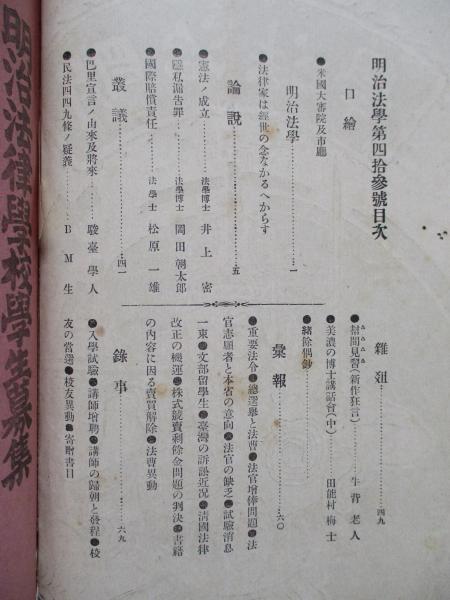 明治法學第四拾參號目次
口繪
●米國大審院及市廳
明治法學………一
●法律家は經世の念なかるへからす
論說………五
●憲法ノ成立………法學博士 井上密
●隱私漏告罪………法學博士 岡田朝太郎
●國際賠償責任………法學士 松原一雄
叢議………四一
●巴里宣言ノ由來及將來………駿臺學人
●民法四四九條ノ疑義………BM生
雜俎………四九
●幇間見習(新作狂言)………牛背老人
●美濃の博士講話會(中)………田能村梅士
●緖餘偶鈔
彙報………六〇
●重要法令●總選擧と法曹●法官增俸問題●法
官志願者と本省の意向●法官の缺乏●試驗消息
一束●文部留學生●臺灣の訴訟近況●淸國法律
改正の機運●株式競賣剩餘金問題の判決●書籍
の內容に因る賣買解除●法曹異動
錄事………六九
●入學試驗●講師增聘●講師の歸朝と發程●校
友の當選●校友異動●寄贈書目
明治法律學校學生募集